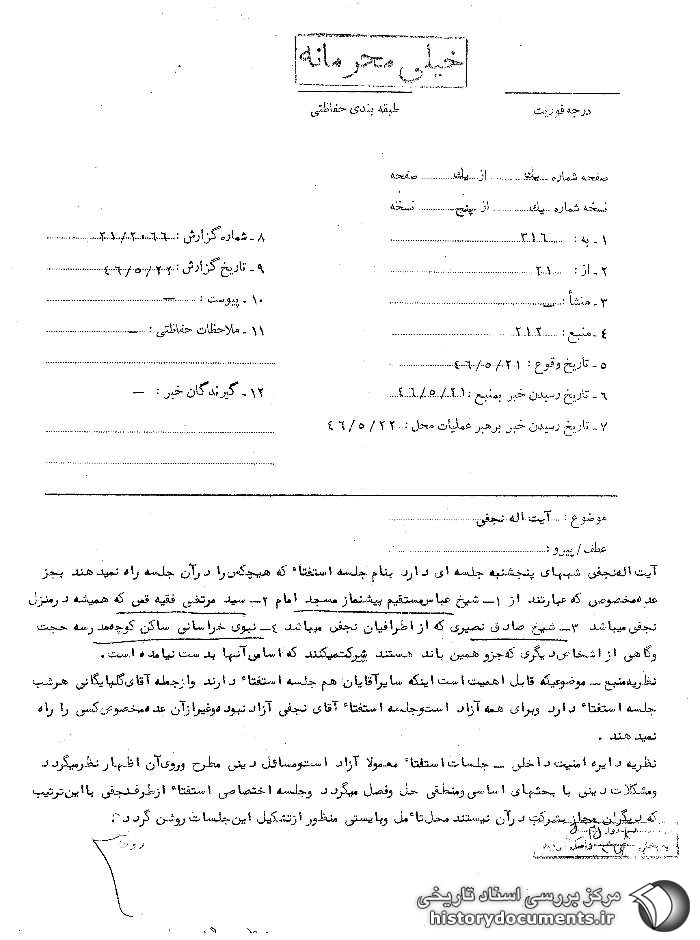 خیلی محرمانه
درجه فوریت
طبقه بندی حفاظتی
صفحه شماره یک از یک صفحه
نسخه شماره یک از پنج نسخه
۱ - به : ۳۱۶
۲ - از : ۲۱
۳ - منشأ : —
۴ - منبع : ۲۱۲
۵ - تاریخ وقوع : ۴۶/۵/۲۱
۶ - تاریخ رسیدن خبر بمنبع : ۴۶/۵/۲۱
۷ - تاریخ رسیدن خبر برهبر عملیات محل : ۴۶/۵/۲۲
۸ - شماره گزارش : ۲۱/۲۰۶۶
۹ - تاریخ گزارش : ۴۶/۵/۲۲
۱۰ - پیوست : —
۱۱ - ملاحظات حفاظتی : —
۱۲ - گیرندگان خبر : —
موضوع : آیت اله نجفی
عطف / پیرو :
آیت اله نجفی شبهای پنجشنبه جلسه ای دارد بنام جلسه استفتاء که هیچکس را درآن جلسه راه نمیدهند بجز
عده مخصوص که عبارتند از ۱ - شیخ عباس مستقیم پیشنماز مسجد امام ۲ - سید مرتضی فقیه قمی که همیشه درمنزل
نجفی میباشد ۳ - شیخ صادق نصیری که از اطرافیان نجفی میباشد ۴ - نبوی خراسانی ساکن کوچه مدرسه حجت
وگاهی از اشخاص دیگری که جزو همین باند هستند شرکت میکنند که اسامی آنها بدست نیامده است .
نظریه منبع - موضوعیکه قابل اهمیت است اینکه سایرآقایان هم جلسه استفتاء دارند وازجمله آقای گلپایگانی هرشب
جلسه استفتاء دارد وبرای همه آزاد است وجلسه استفتاء آقای نجفی آزاد نبوده وغیرازآن عده مخصوص کسی را راه
نمیدهند .
نظریه دایره امنیت داخلی - جلسات استفتاء معمولا آزاد است ومسائل دینی مطرح وروی آن اظهار نظرمیگردد
ومشکلات دینی با بحثهای اساسی ومنطقی حل وفصل میگردد وجلسه اختصاصی استفتاء ازطرف نجفی بااین ترتیب
که دیگران مجاز بشرکت درآن نیستند محل تأمل وبایستی منظور ازتشکیل این جلسات روشن گردد .
مرکز بررسی اسناد تاریخی
historydocuments.ir